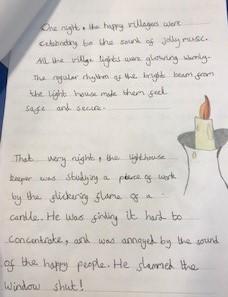 One night, the happy villagers were
celebrating to the sound of jolly music.
All the village lights were glowing warmly.
The regular rhythm of the bright beam from
the light house made them feel
safe and secure.
That very night, the lighthouse
keeper was studying a piece of work
by the flickering flame of a
candle. He was finding it hard to
concentrate, and was annoyed by the sound
of the happy people. He slammed the
window shut!